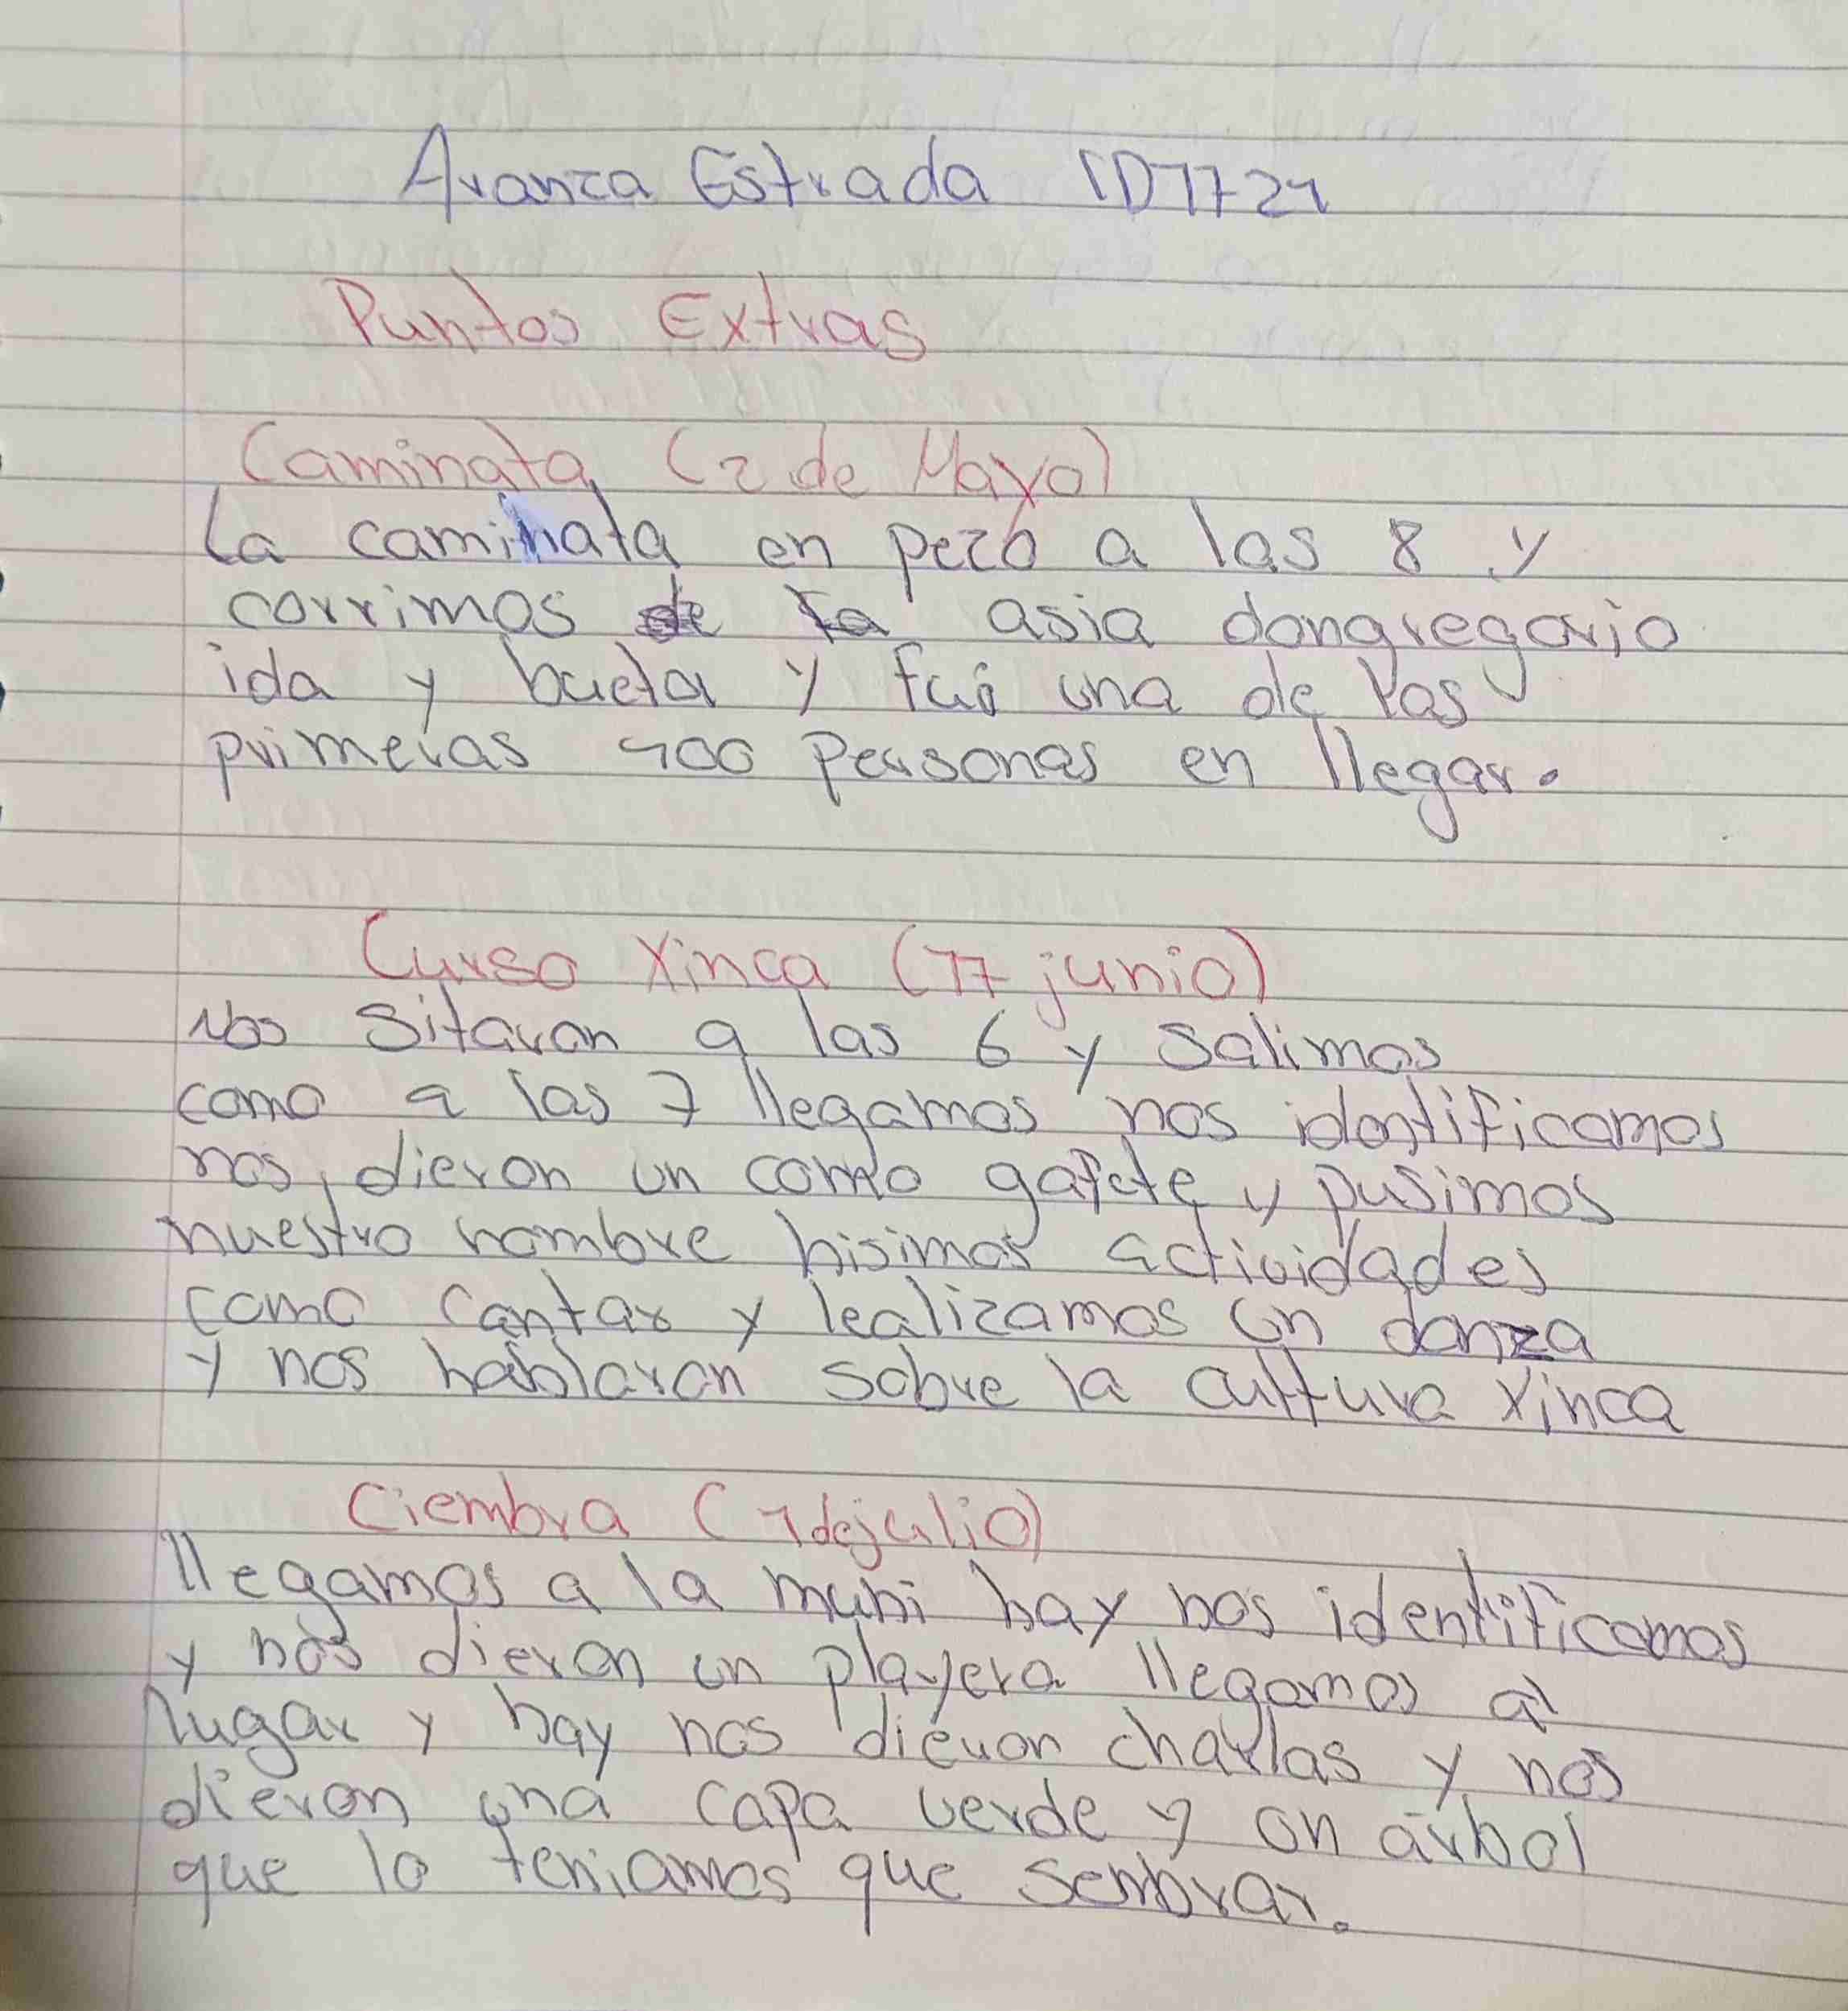 Aranza Estrada ID1721
Puntos Extras
Caminata (2 de Mayo)
La caminata en pezó a las 8 y
corrimos de la asia dongregorio
ida y buelta y fui una de las
primeras 400 Personas en llegar.
Curso Xinca (17 junio)
Nos sitaron a las 6 y salimos
como a las 7 llegamos nos identificamos
nos dieron un como gafete y pusimos
nuestro nombre hisimos actividades
como cantar y lealizamos un danza
y nos hablaron sobre la cultura xinca
Ciembra (1 de julio)
llegamos a la muni hay nos identificamos
y nos dieron un playera llegamos al
lugar y hay nos dieron charlas y nos
dieron una capa verde y un árbol
que lo teniamos que sembrar.